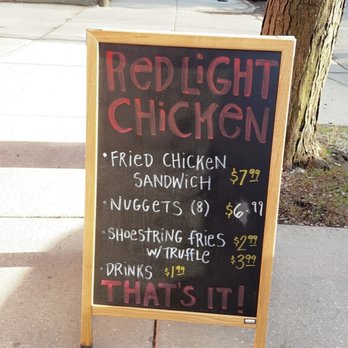 RED LIGHT
CHICKEN
• FRIED CHICKEN
SANDWICH $7.99
• NUGGETS (8) $6.99
• SHOESTRING FRIES $2.99
W/ TRUFFLE $3.99
• DRINKS $1.99
THAT'S IT!